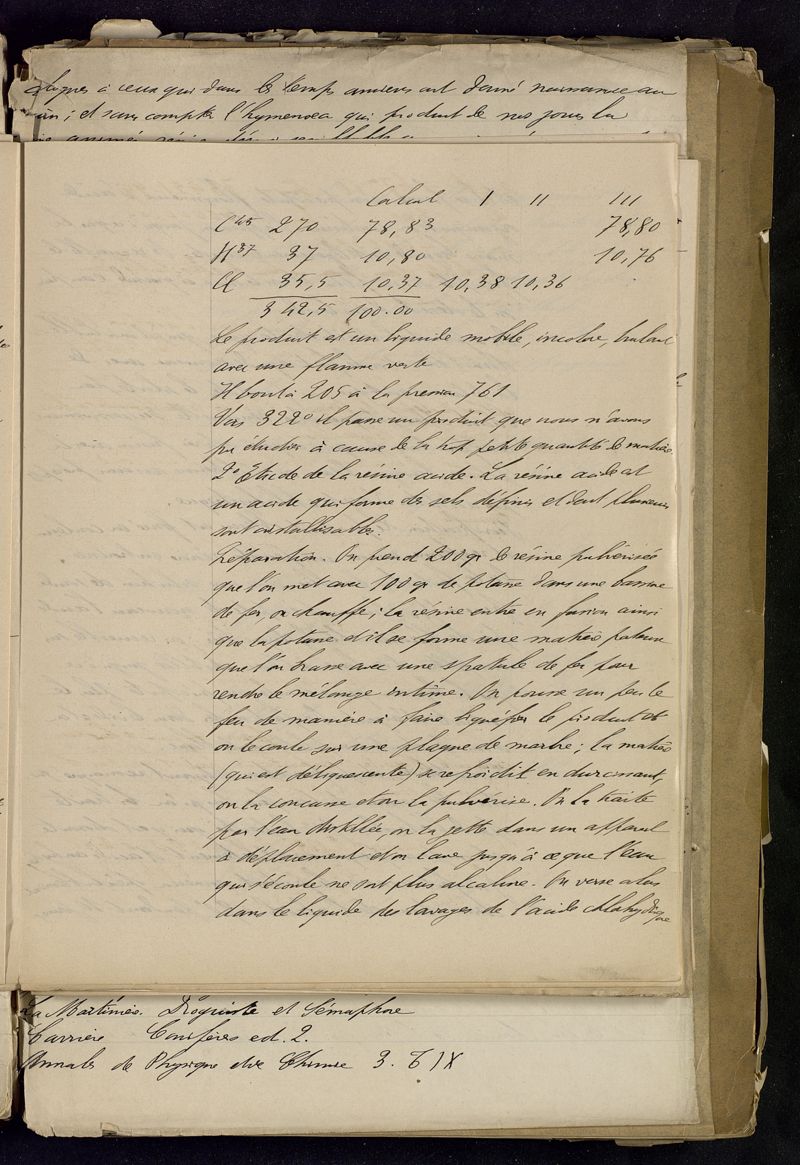 à ceux qui dans les temps anciens ont donné naissance au
; et sans compter l'hymenoea qui produit de nos jours la
Calcul I II III
C45 270 78,83 78,80
H37 37 10,80 10,76
Cl 35,5 10,37 10,38 10,36
342,5 100.00
Le produit est un liquide mobile, incolore, brulant
avec une flamme verte
Il bout à 205 à la pression 761
Vers 322° il passe un produit que nous n'avons
pu étudier à cause de la trop petite quantité de matière
2° Etude de la résine acide. La résine acide est
un acide qui forme des sels définis et dont plusieurs
sont cristallisables.
Préparation. On prend 200 gr de résine pulvérisée
que l'on met avec 100 gr de potasse dans une bassine
de fer, on chauffe ; la résine entre en fusion ainsi
que la potasse et il se forme une matière pateuse
que l'on brasse avec une spatule de fer pour
rendre le mélange intime. On pousse un peu le
feu de manière à faire liquéfier le produit et
on le coule sur une plaque de marbre ; la matière
(qui est déliquescente) se refroidit en durcissant,
on la concasse et on la pulvérise. On la traite
par l'eau distillée, on la jette dans un appareil
à déplacement et on lave jusqu'à ce que l'eau
qui s'écoule ne soit plus alcaline. On verse alors
dans le liquide des lavages de l'acide chlorhydrique
La Martinière. Droguiste et Sémaphore
Carrière Conifères ed. 2.
Annales de Physique et de Chimie 3. T IX